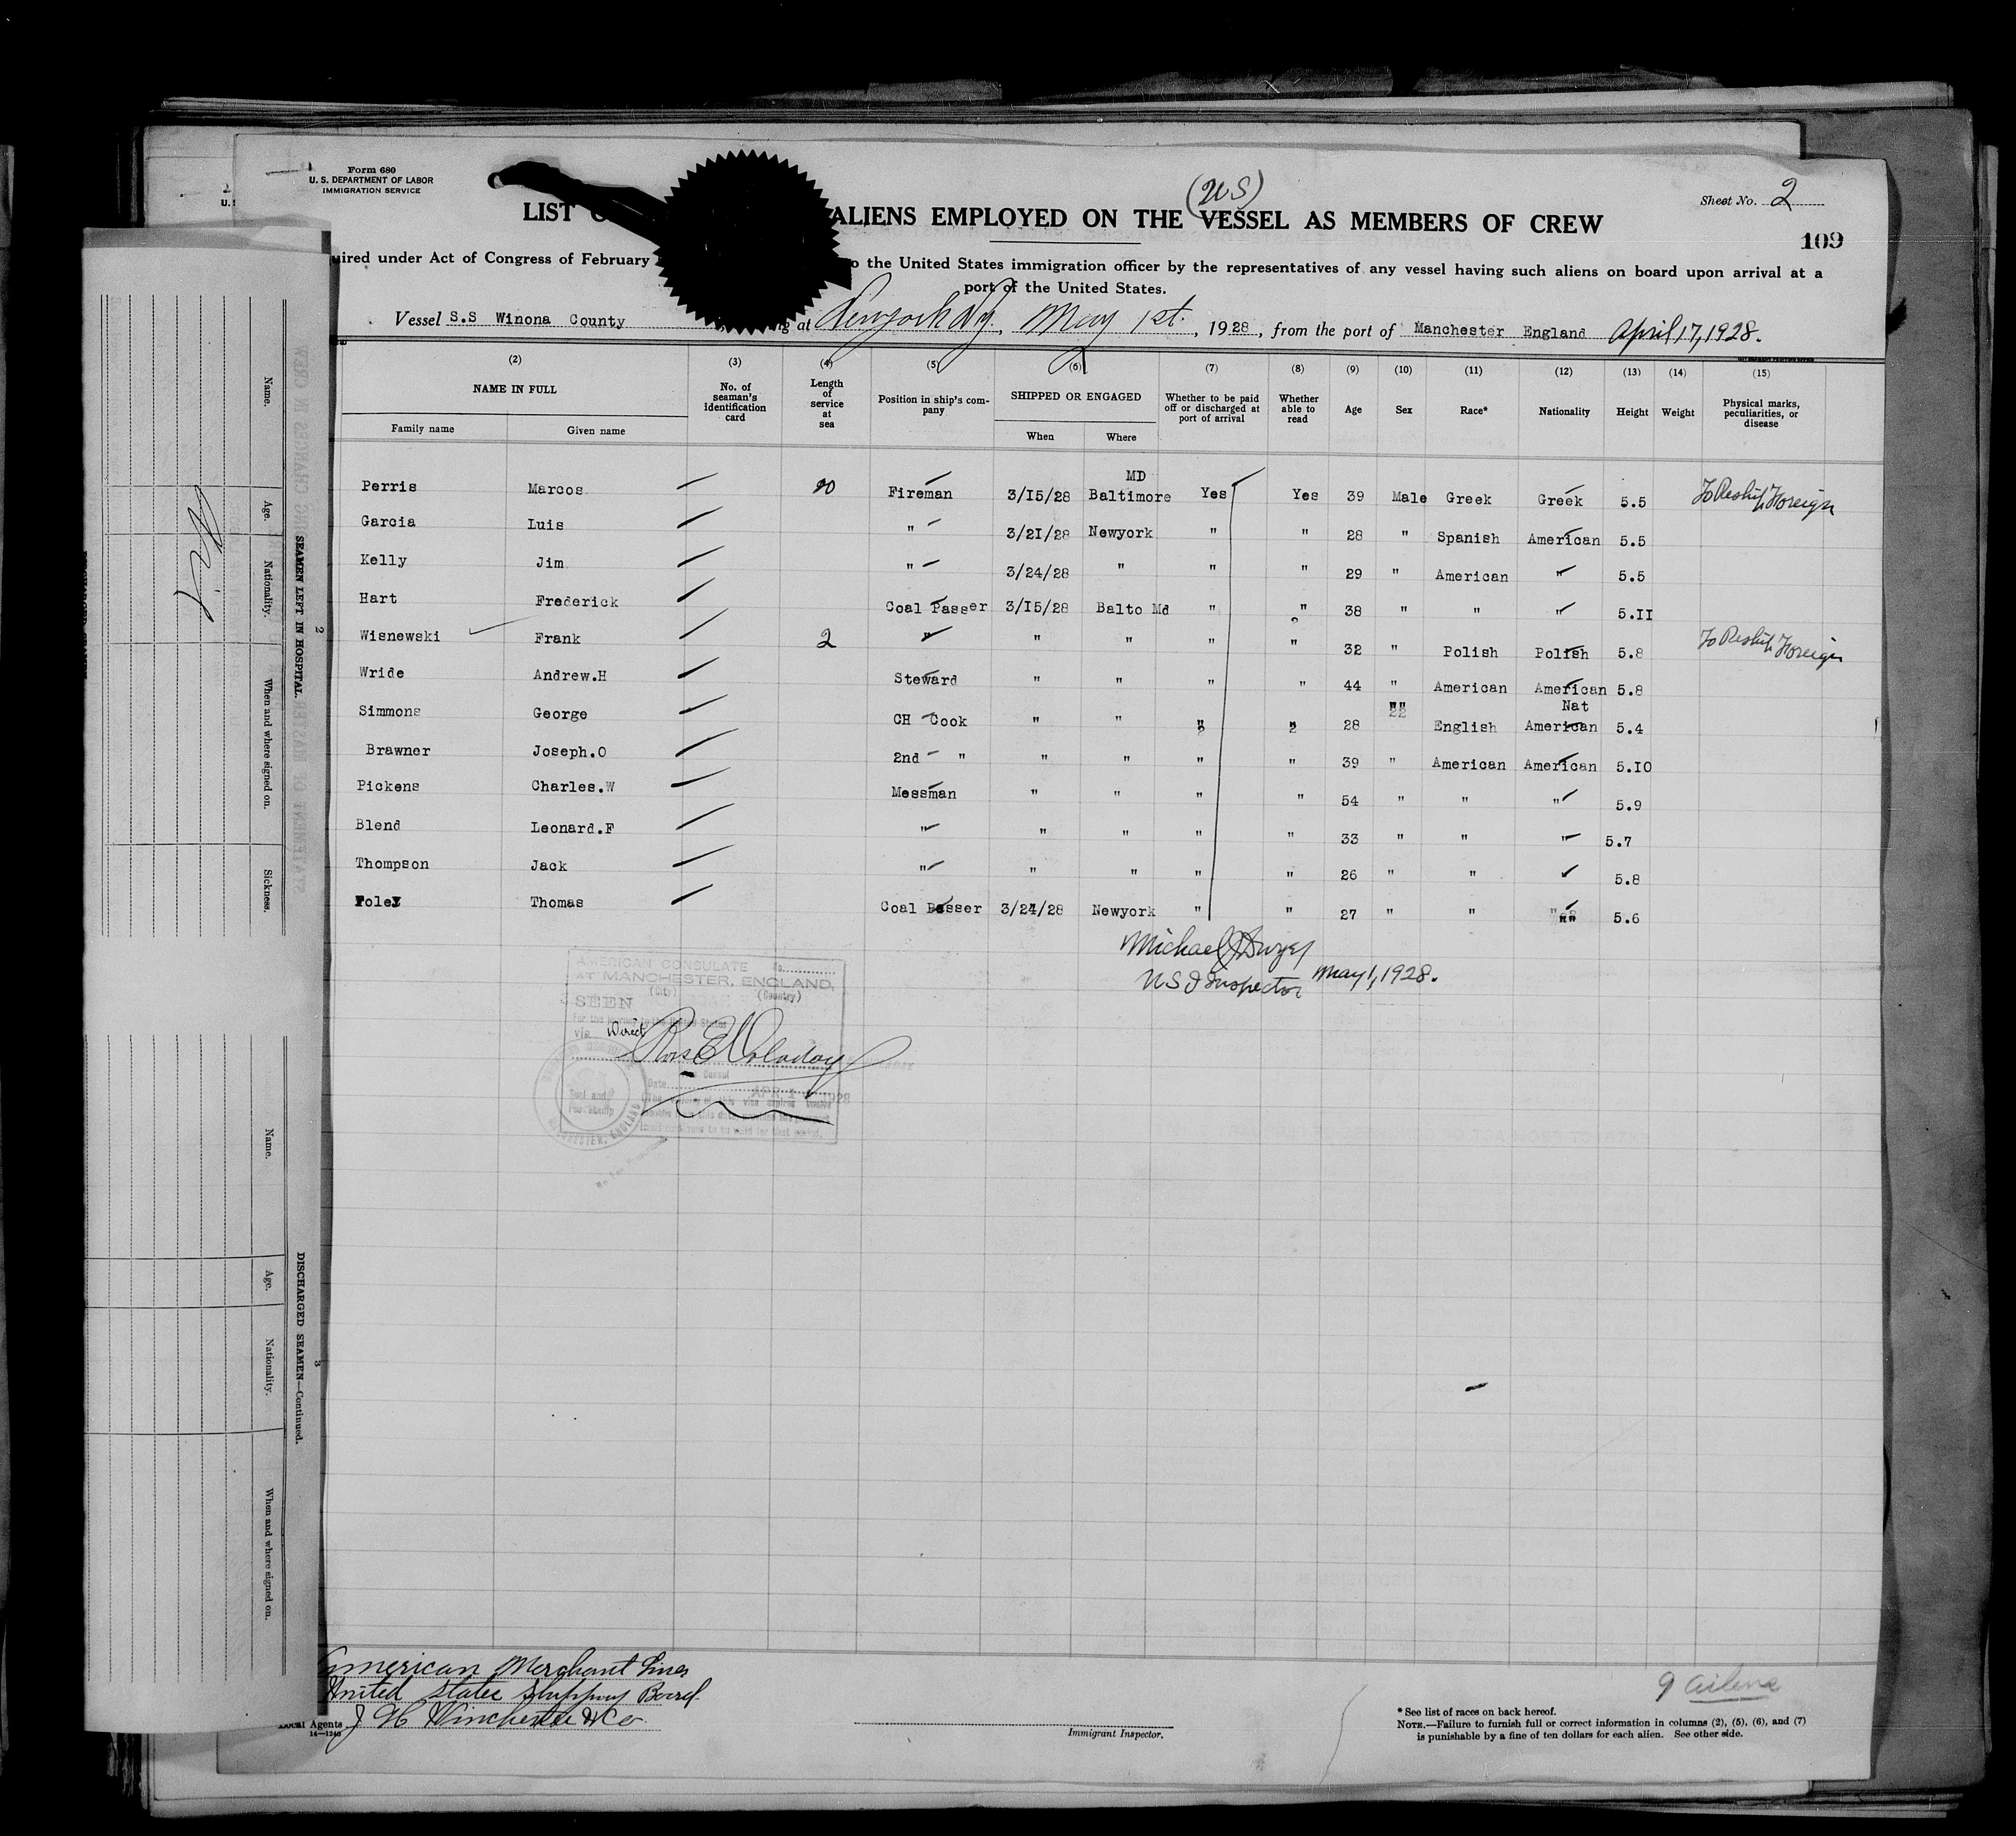 Form 680
U. S. DEPARTMENT OF LABOR
IMMIGRATION SERVICE
(US)
Sheet No. 2
LIST O ALIENS EMPLOYED ON THE VESSEL AS MEMBERS OF CREW
109
uired under Act of Congress of February o the United States immigration officer by the representatives of any vessel having such aliens on board upon arrival at a
port of the United States.
Vessel S.S Winona County g at Newyork Ny., May 1st., 1928, from the port of Manchester England April 17, 1928.
(2) (3) (4) (5) (6) (7) (8) (9) (10) (11) (12) (13) (14) (15)
NAME IN FULL
Family name Given name
No. of seaman's identification card
Length of service at sea
Position in ship's company
SHIPPED OR ENGAGED
When Where
Whether to be paid off or discharged at port of arrival
Whether able to read
Age Sex Race* Nationality Height Weight
Physical marks, peculiarities, or disease
Perris Marcos 20 Fireman 3/15/28 MD Baltimore Yes Yes 39 Male Greek Greek 5.5 To Reship Foreign
Garcia Luis " 3/21/28 Newyork " " 28 " Spanish American 5.5
Kelly Jim " 3/24/28 " " " 29 " American " 5.5
Hart Frederick Coal Passer 3/15/28 Balto Md " " 38 " " " 5.11
Wisnewski Frank 2 " " " " " 32 " Polish Polish 5.8 To Reship Foreign
Wride Andrew.H Steward " " " " 44 " American American 5.8
Simmons George CH Cook " " " " 28 " English Nat American 5.4
Brawner Joseph.O 2nd " " " " " 39 " American American 5.10
Pickens Charles.W Messman " " " " 54 " " " 5.9
Blend Leonard.F " " " " " 33 " " " 5.7
Thompson Jack " " " " " 26 " " 5.8
Foley Thomas Coal Passer 3/24/28 Newyork " " 27 " " " 5.6
Michael J Dwyer
US I Inspector May 1, 1928.
AMERICAN CONSULATE No.
AT MANCHESTER, ENGLAND,
(City) (Country)
SEEN
For the journey to the United States
via Direct
Consul
Date APR 1 1928
Seal and
Fee Stamp
MANCHESTER, ENGLAND
American Merchant Lines
United States Shipping Board.
Local Agents J H Winchester & Co.
14—1240
Immigrant Inspector.
9 aliens
* See list of races on back hereof.
NOTE.—Failure to furnish full or correct information in columns (2), (5), (6), and (7)
is punishable by a fine of ten dollars for each alien. See other side.
SEAMEN LEFT IN HOSPITAL.
2
Name. Age. Nationality. When and where signed on. Sickness.
DISCHARGED SEAMEN—Continued.
3
Name. Age. Nationality. When and where signed on.